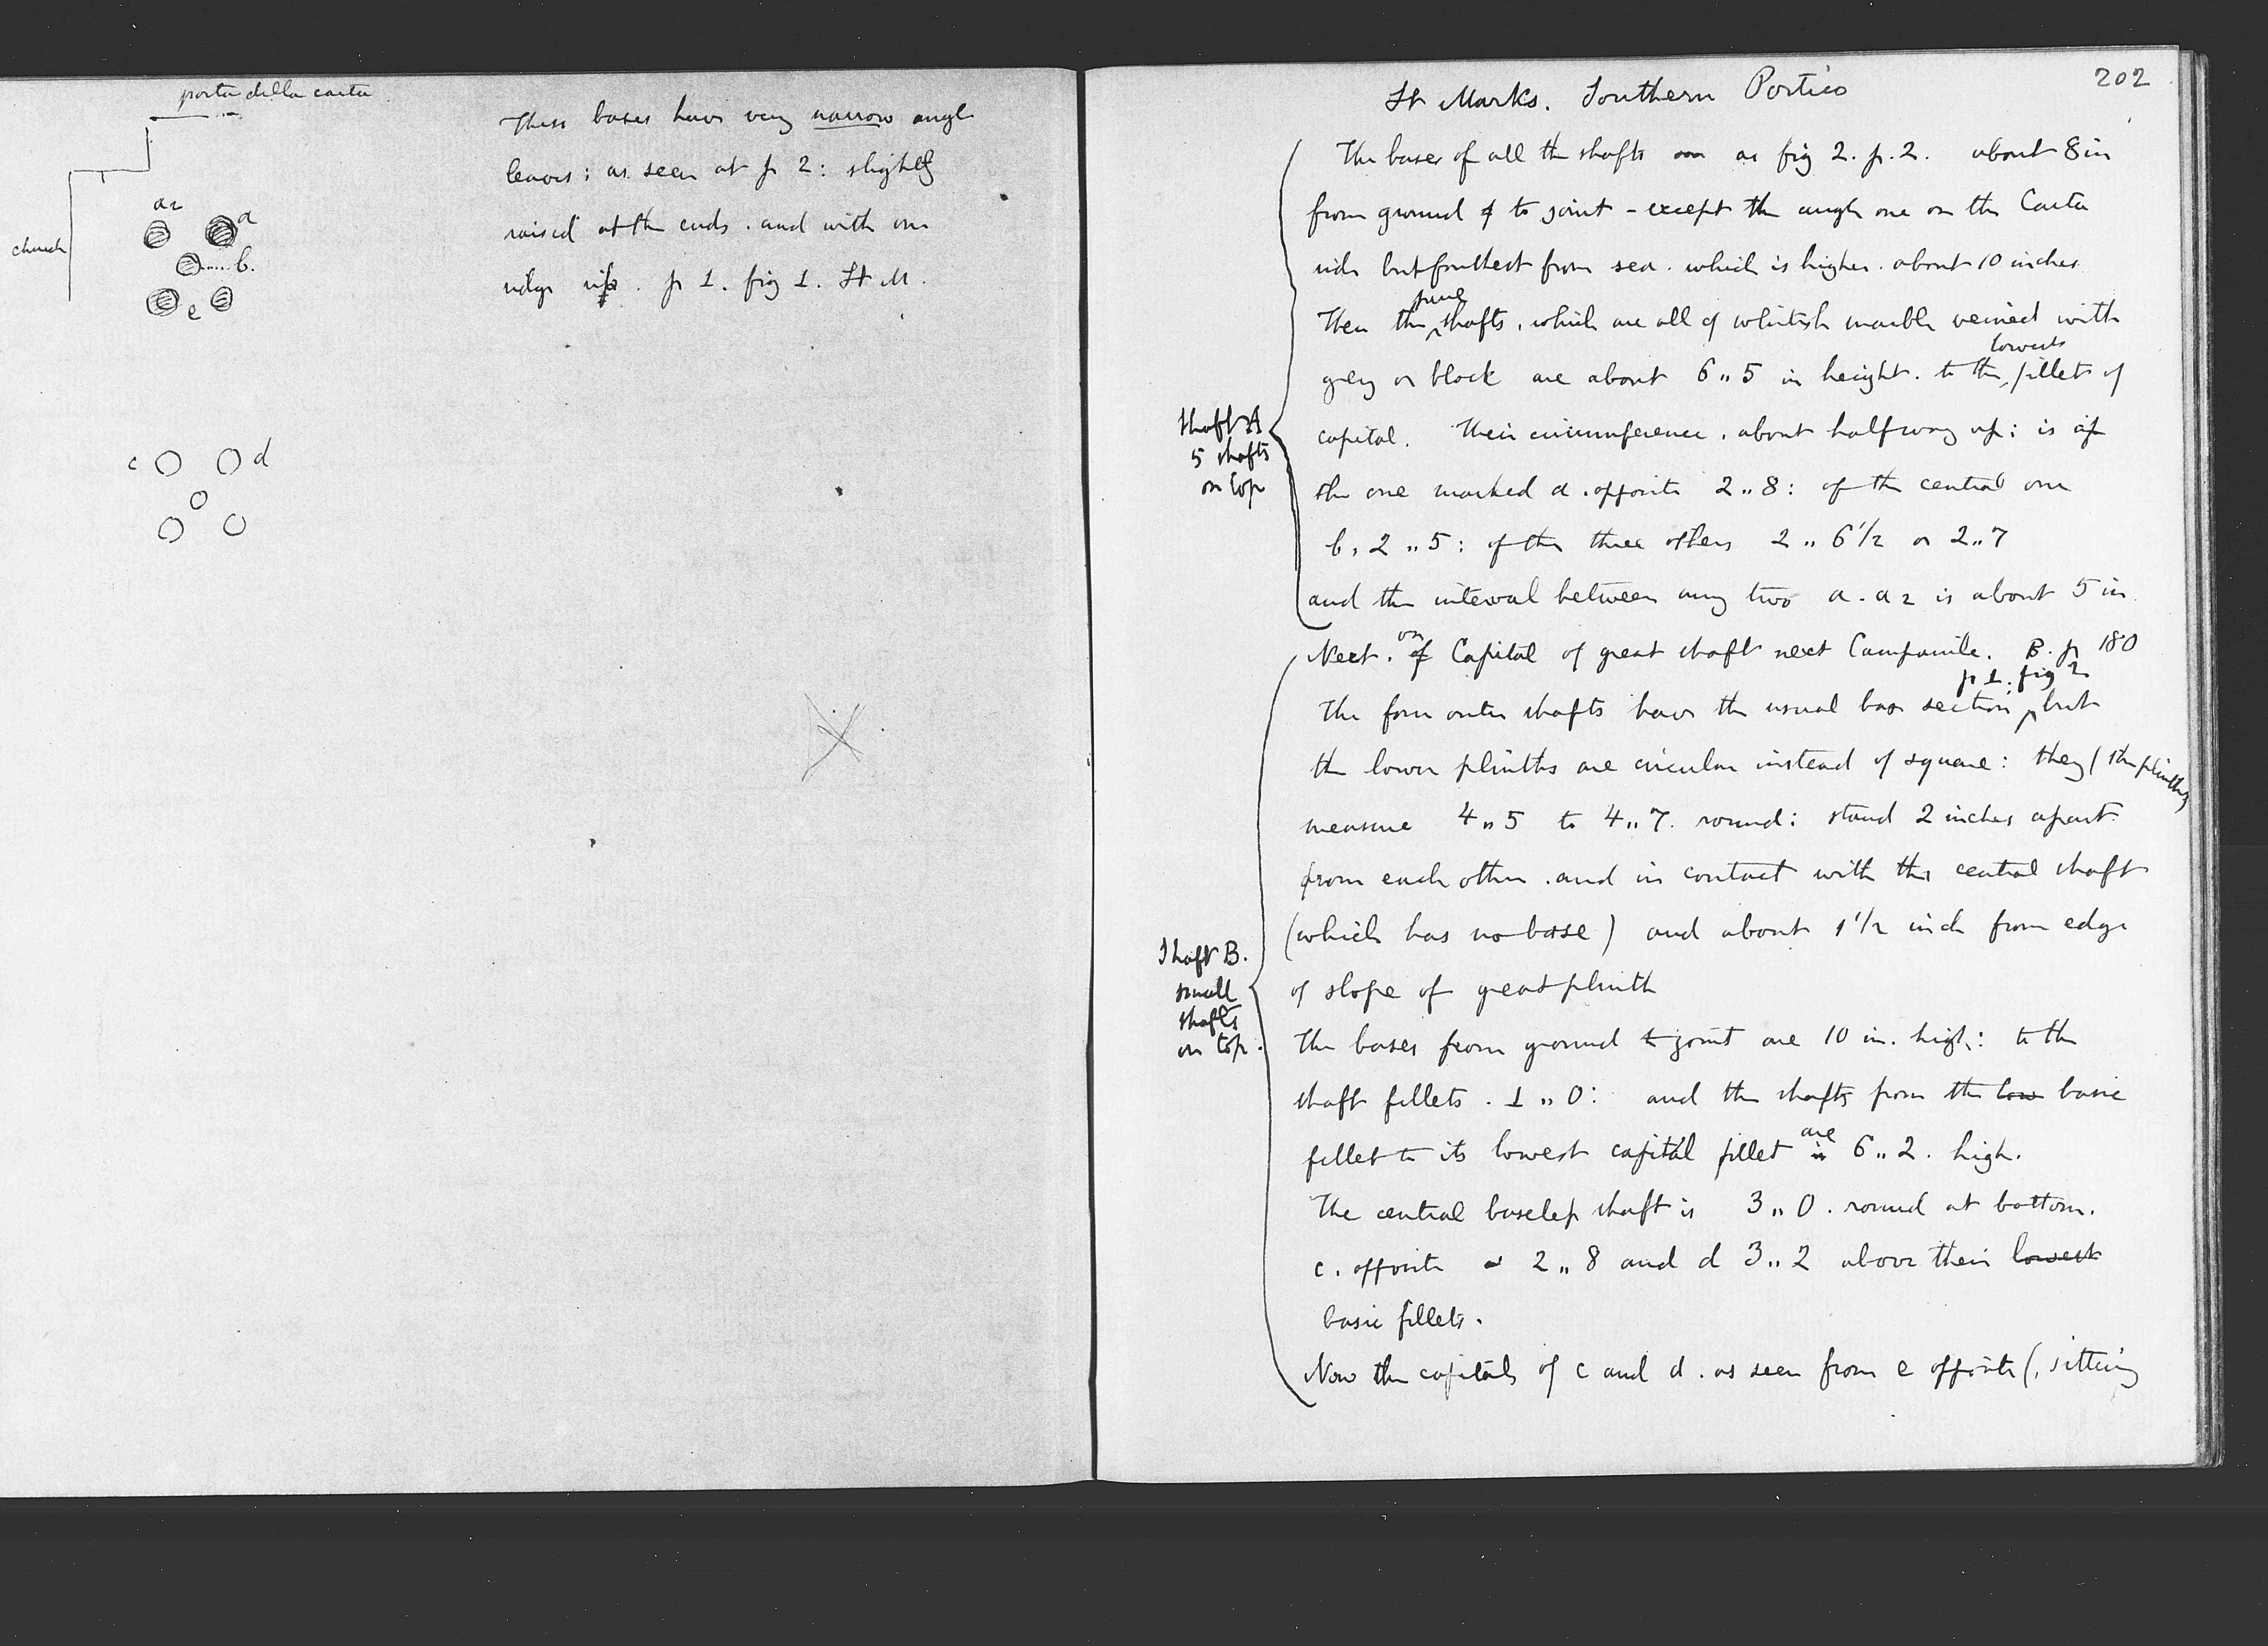 porta della carta
church
a2
a
b.
e
c
d
These bases have very narrow angle
leaves; as seen at p 2: slightly
raised at the ends. and with one
ridge up. p 1. fig 1. St M.
202
St Marks. Southern Portico
The bases of all the shafts are as fig 2. p. 2. about 8 in
from ground to joint - except the angle one on the Carta
side but farthest from sea. which is higher. about 10 inches
Then the pure shafts, which are all of whitish marble veined with
grey or black are about 6 " 5 in height. to the lowest fillets of
capital. Their circumference, about halfway up; is of
the one marked a. opposite 2 " 8: of the central one
b, 2 " 5: of the three others 2 " 6 1/2 or 2 " 7
and the interval between any two a. a2 is about 5 in
Shaft A
5 shafts
on top
Next. on of Capital of great shaft next Campanile. B. p 180
The four outer shafts have the usual base section, p 1. fig 2 but
the lower plinths are circular instead of square: they (the plinths)
measure 4 " 5 to 4 " 7. round: stand 2 inches apart
from each other. and in contact with the central shaft
(which has no base) and about 1 1/2 inch from edge
of slope of great plinth
The bases from ground to joint are 10 in. high: to the
shaft fillets. 1 " 0: and the shafts from the low basic
fillet to its lowest capital fillet are is 6 " 2. high.
The central baseless shaft is 3 " 0. round at bottom.
c. opposite 2 " 8 and d 3 " 2 above their lowest
basic fillets.
Now the capitals of c and d. as seen from e opposite (, sitting
Shaft B.
small
shafts
on top.